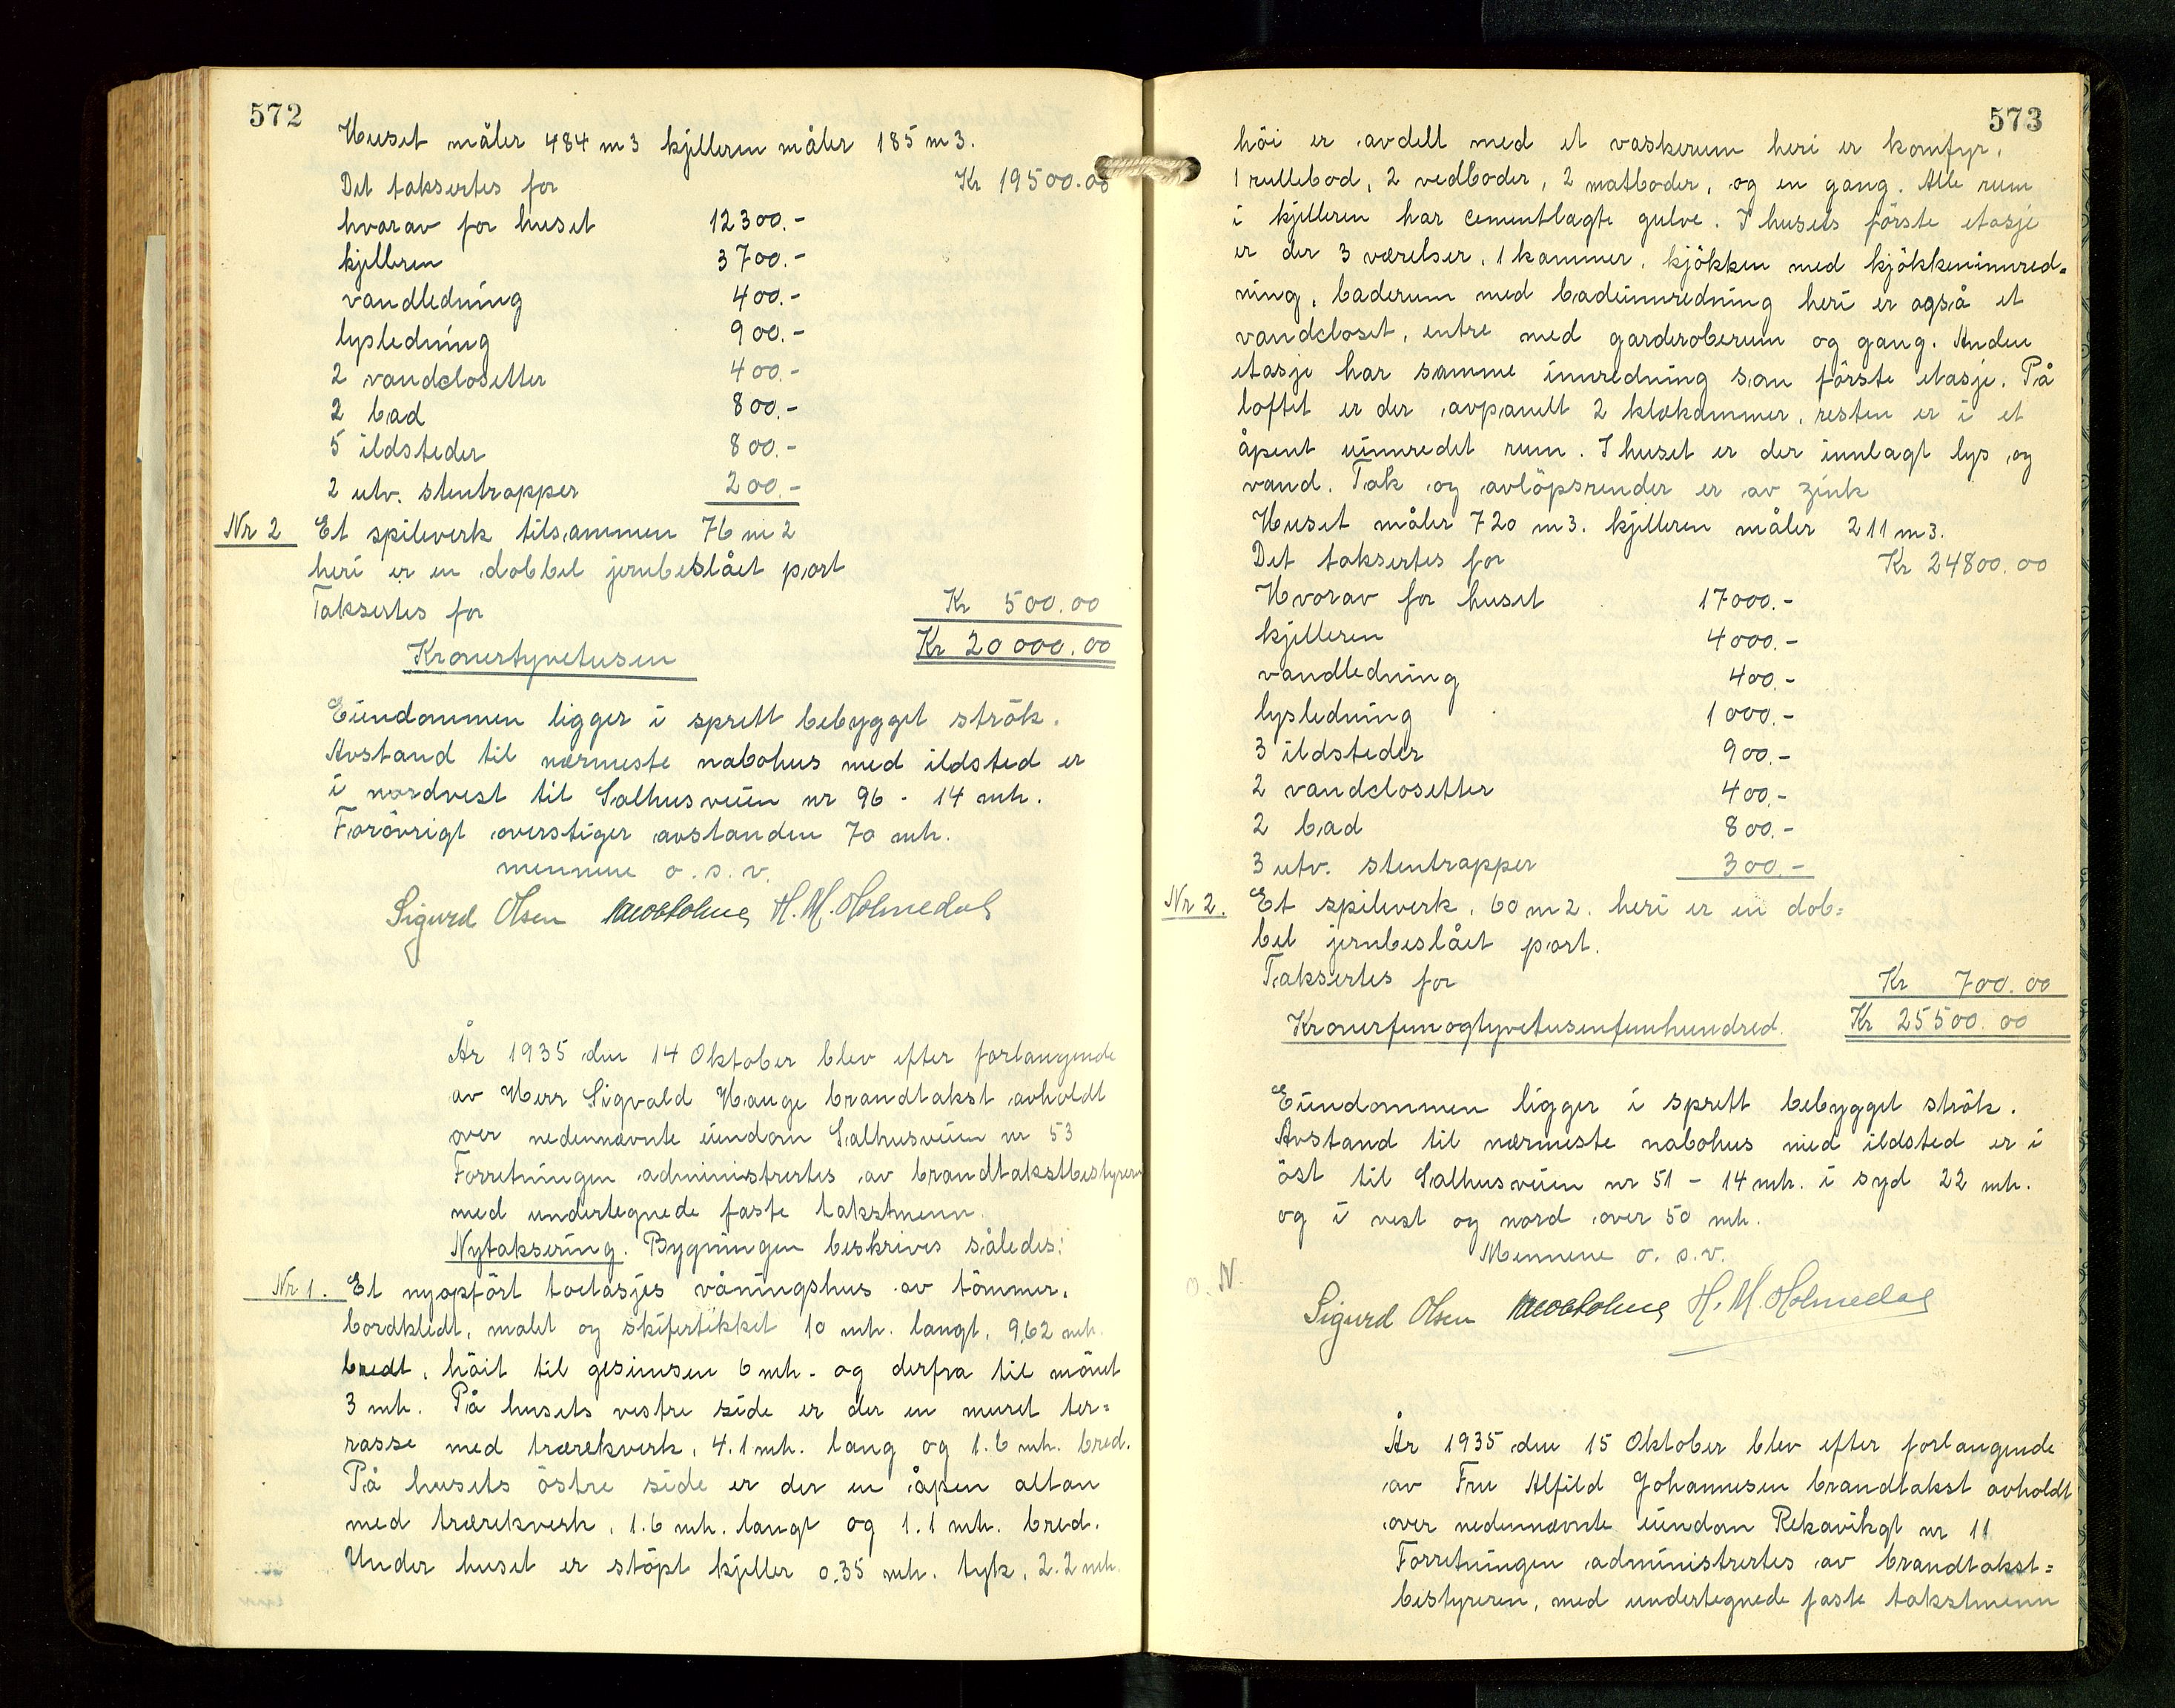 572
Huset måler 484 m3 kjelleren måler 185 m3.
Det taksertes for Kr 19500.00
hvorav for huset 12300.-
kjelleren 3700.-
vandledning 400.-
lysledning 900.-
2 vandclosetter 400.-
2 bad 800.-
5 ildsteder 800.-
2 utv. stentrapper 200.-
Nr 2 Et spileverk tilsammen 76 m2
heri er en dobbel jernbeslået port
Taksertes for Kr 500.00
Kronertyvetusen Kr 20000.00
Eiendommen ligger i sprett bebygget strök.
Avstand til nærmeste nabohus med ildsted er
i nordvest til Salhusveien nr 96 - 14 mtr.
Forövrigt overstiger avstanden 70 mtr.
mennene o. s. v.
Sigurd Olsen H. M. Holmedal
År 1935 den 14 Oktober blev efter forlangende
av Herr Sigvald Hauge brandtakst avholdt
over nedennævnte eiendom Salhusveien nr 53
Forretningen administrertes av brandtakstbestyreren
med undertegnede faste takstmenn.
Nytaksering. Bygningen beskrives således:
Nr 1. Et nyopfört toetasjes våningshus av tömmer,
bordkledt, malet og skifertekket 10 mtr. langt, 9,62 mtr.
bredt, höit til gesimsen 6 mtr. og derfra til mönet
3 mtr. På husets vestre side er der en muret ter=
rasse med trærekverk, 4.1 mtr. lang og 1.6 mtr. bred.
På husets östre side er der en åpen altan
med trærekverk, 1.6 mtr. langt og 1.1 mtr. bred.
Under huset er stöpt kjeller 0.35 mtr. tyk, 2.2 mtr.
573
höi er avdelt med et vaskerum heri er komfyr,
1 rullebod, 2 vedboder, 2 matboder, og en gang. Alle rum
i kjelleren har cementlagte gulve. I husets förste etasje
er der 3 værelser, 1 kammer, kjökken med kjökkeninnred=
ning, baderum med badeinnredning heri er også et
vandcloset, entre med garderoberum og gang. Anden
etasje har samme innredning som förste etasje. På
loftet er der avpanelt 2 klækammer, resten er i et
åpent uinnredet rum. I huset er der innlagt lys og
vand. Tak og avlöpsrender er av zink
Huset måler 720 m3. kjelleren måler 211 m3.
Det taksertes for Kr 24800.00
Hvorav for huset 17000.-
kjelleren 4000.-
vandledning 400.-
lysledning 1000.-
3 ildsteder 900.-
2 vandclosetter 400.-
2 bad 800.-
3 utv. stentrapper 300.-
Nr 2. Et spileverk, 60 m2. heri er en dob=
bel jernbeslået port.
Taksertes for Kr 700.00
Kronerfemogtyvetusenfemhundred. Kr 25500.00
Eiendommen ligger i sprett bebygget strök.
Avstand til nærmeste nabohus med ildsted er i
öst til Salhusveien nr 51 - 14 mtr. i syd 22 mtr.
og i vest og nord over 50 mtr.
Mennene o. s. v.
o. N.
Sigurd Olsen H. M. Holmedal
År 1935 den 15 Oktober blev efter forlangende
av Fru Alfild Johannesen brandtakst avholdt
over nedennævnte eiendom Rekavikgt nr 11
Forretningen administrertes av brandtakst=
bestyreren, med undertegnede faste takstmenn